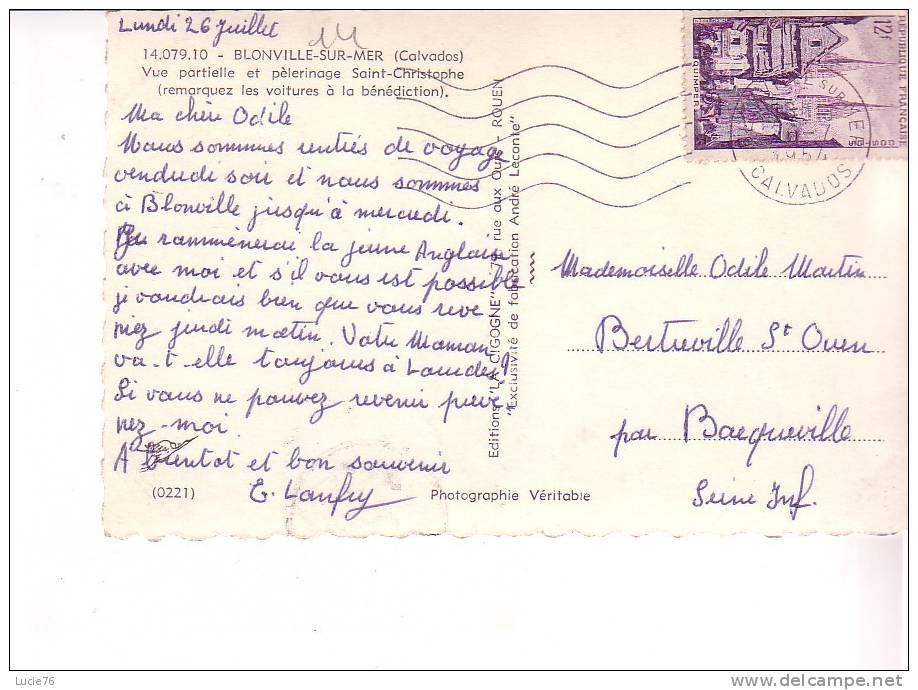 Lundi 26 Juillet
14.079.10 - BLONVILLE-SUR-MER (Calvados)
Vue partielle et pèlerinage Saint-Christophe
(remarquez les voitures à la bénédiction).
Ma chère Odile
Nous sommes rentrés de voyage
vendredi soir et nous sommes
à Blonville jusqu'à mercredi.
ramménerai la jeune Anglaise
avec moi et s'il vous est possible
je voudrais bien que vous reve
niez jeudi matin. Votre Maman
va-t-elle toujours à Lourdes ?
Si vous ne pouvez revenir préve
nez-moi.
A bientôt et bon souvenir
E. Lanfry
(0221)
Photographie Véritable
Editions "LA CIGOGNE" 79, rue aux Ours - ROUEN
"Exclusivité de fabrication André Leconte"
REPUBLIQUE FRANÇAISE
12f
POSTES
QUIMPER
SUR MER
1954
CALVADOS
Mademoiselle Odile Martin
Bertreville St Ouen
par Bacqueville
Seine Inf.
Lucie76
delcampe.net